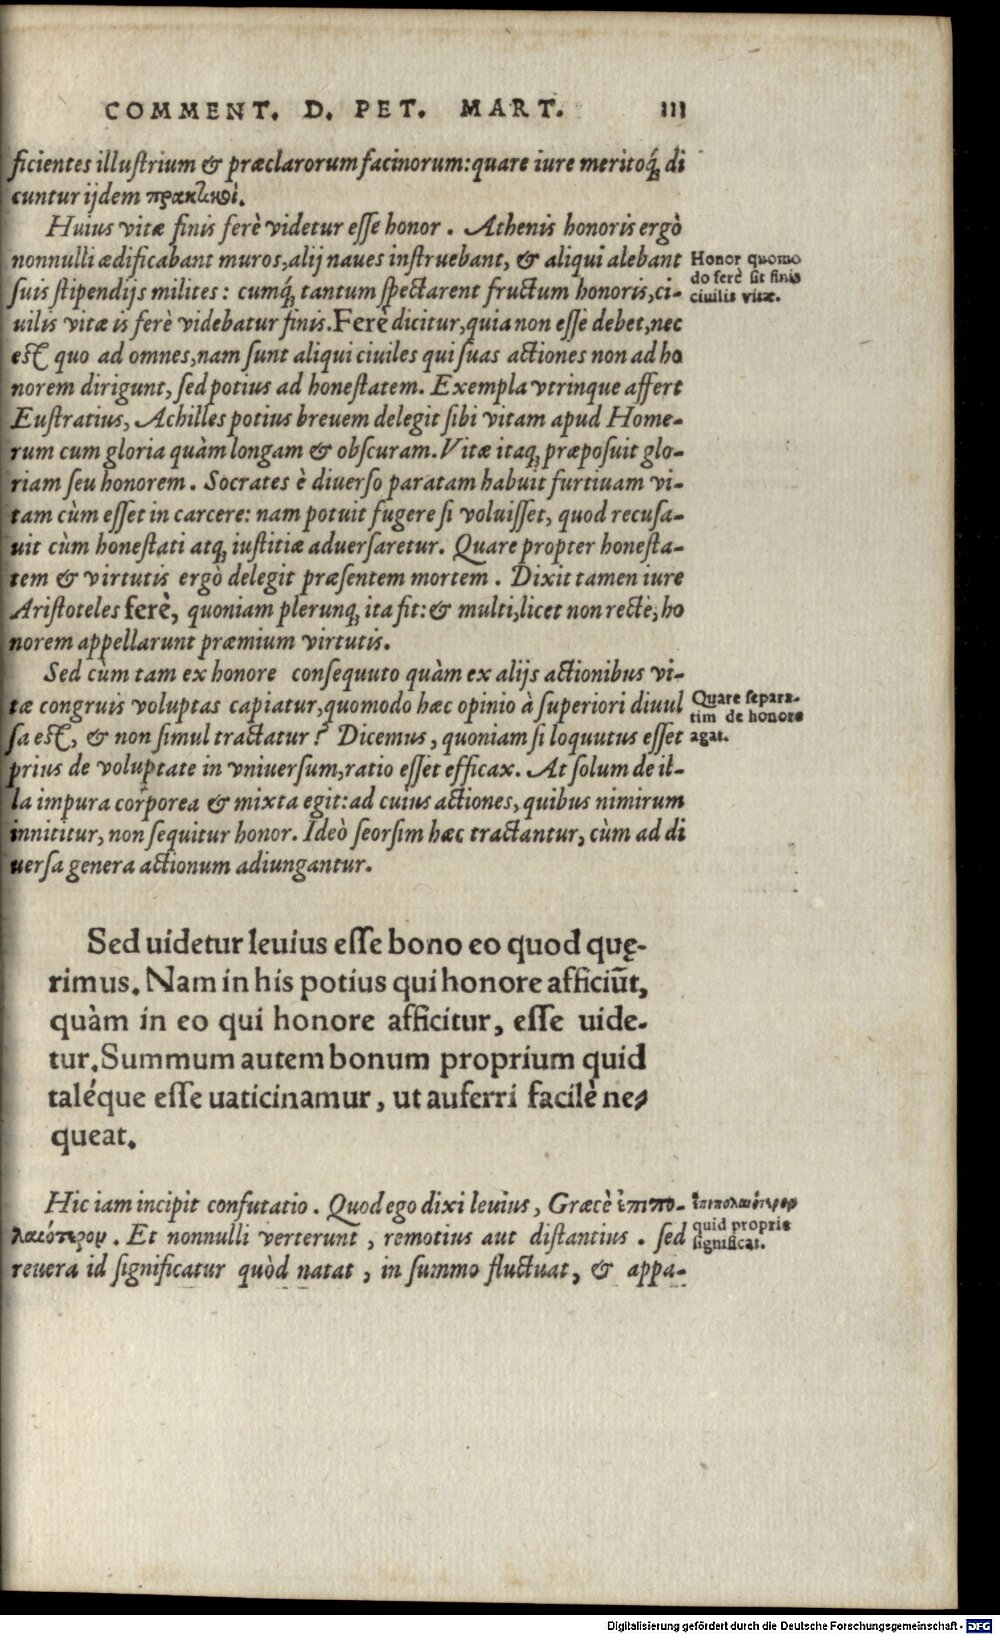 COMMENT. D. PET. MART. 111
ficientes illustrium & præclarorum facinorum: quare iure meritoq́; di
cuntur ijdem πρακτικοί.
Huius vitæ finis ferè videtur esse honor. Athenis honoris ergò
nonnulli ædificabant muros, alij naues instruebant, & aliqui alebant
suis stipendijs milites: cumq́; tantum spectarent fructum honoris, ci-
uilis vitæ is ferè videbatur finis. Ferè dicitur, quia non esse debet, nec
est quo ad omnes, nam sunt aliqui ciuiles qui suas actiones non ad ho
norem dirigunt, sed potius ad honestatem. Exempla vtrinque affert
Eustratius, Achilles potius breuem delegit sibi vitam apud Home-
rum cum gloria quàm longam & obscuram. Vitæ itaq; præposuit glo-
riam seu honorem. Socrates è diuerso paratam habuit furtiuam vi-
tam cùm esset in carcere: nam potuit fugere si voluisset, quod recusa-
uit cùm honestati atq; iustitiæ aduersaretur. Quare propter honesta-
tem & virtutis ergò delegit præsentem mortem. Dixit tamen iure
Aristoteles ferè, quoniam plerunq; ita fit: & multi, licet non rectè, ho
norem appellarunt præmium virtutis.
Honor quomo
do ferè sit finis
ciuilis vitæ.
Sed cùm tam ex honore consequuto quàm ex alijs actionibus vi-
tæ congruis voluptas capiatur, quomodo hæc opinio à superiori diuul
sa est, & non simul tractatur? Dicemus, quoniam si loquutus esset
prius de voluptate in vniuersum, ratio esset efficax. At solum de il-
la impura corporea & mixta egit: ad cuius actiones, quibus nimirum
innititur, non sequitur honor. Ideò seorsim hæc tractantur, cùm ad di
uersa genera actionum adiungantur.
Quare separa-
tim de honore
agat.
Sed uidetur leuius esse bono eo quod quę-
rimus. Nam in his potius qui honore afficiūt,
quàm in eo qui honore afficitur, esse uide-
tur. Summum autem bonum proprium quid
taléque esse uaticinamur, ut auferri facilè ne-
queat.
Hic iam incipit confutatio. Quod ego dixi leuius, Græcè ἐπιπο-
λαιότερον. Et nonnulli verterunt, remotius aut distantius. sed
reuera id significatur quòd natat, in summo fluctuat, & appa-
ἐπιπολαιότερον
quid proprie
significat.
Digitalisierung gefördert durch die Deutsche Forschungsgemeinschaft - DFG